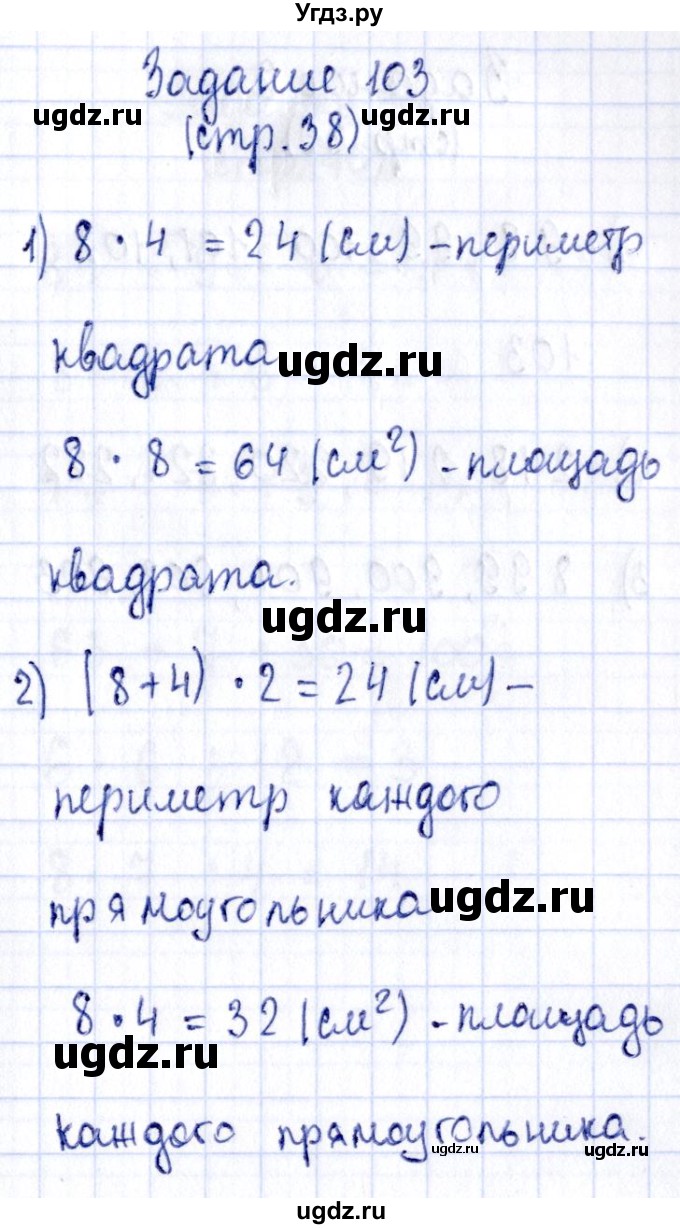 Угдз.ру
Задание 103
ugdz.ru ugdz.ru
(стр. 38)
1) 8 · 4 = 24 (см) – периметр
квадрата
ugdz.ru
8 · 8 = 64 (см²) – площадь
квадрата.
ugdz.ru
2) (8+4) · 2 = 24 (см) –
периметр каждого
прямоугольника
ugdz.ru
8 · 4 = 32 (см²) – площадь
ugdz.ru
каждого прямоугольника.
ugdz.ru ugdz.ru
ugdz.ru